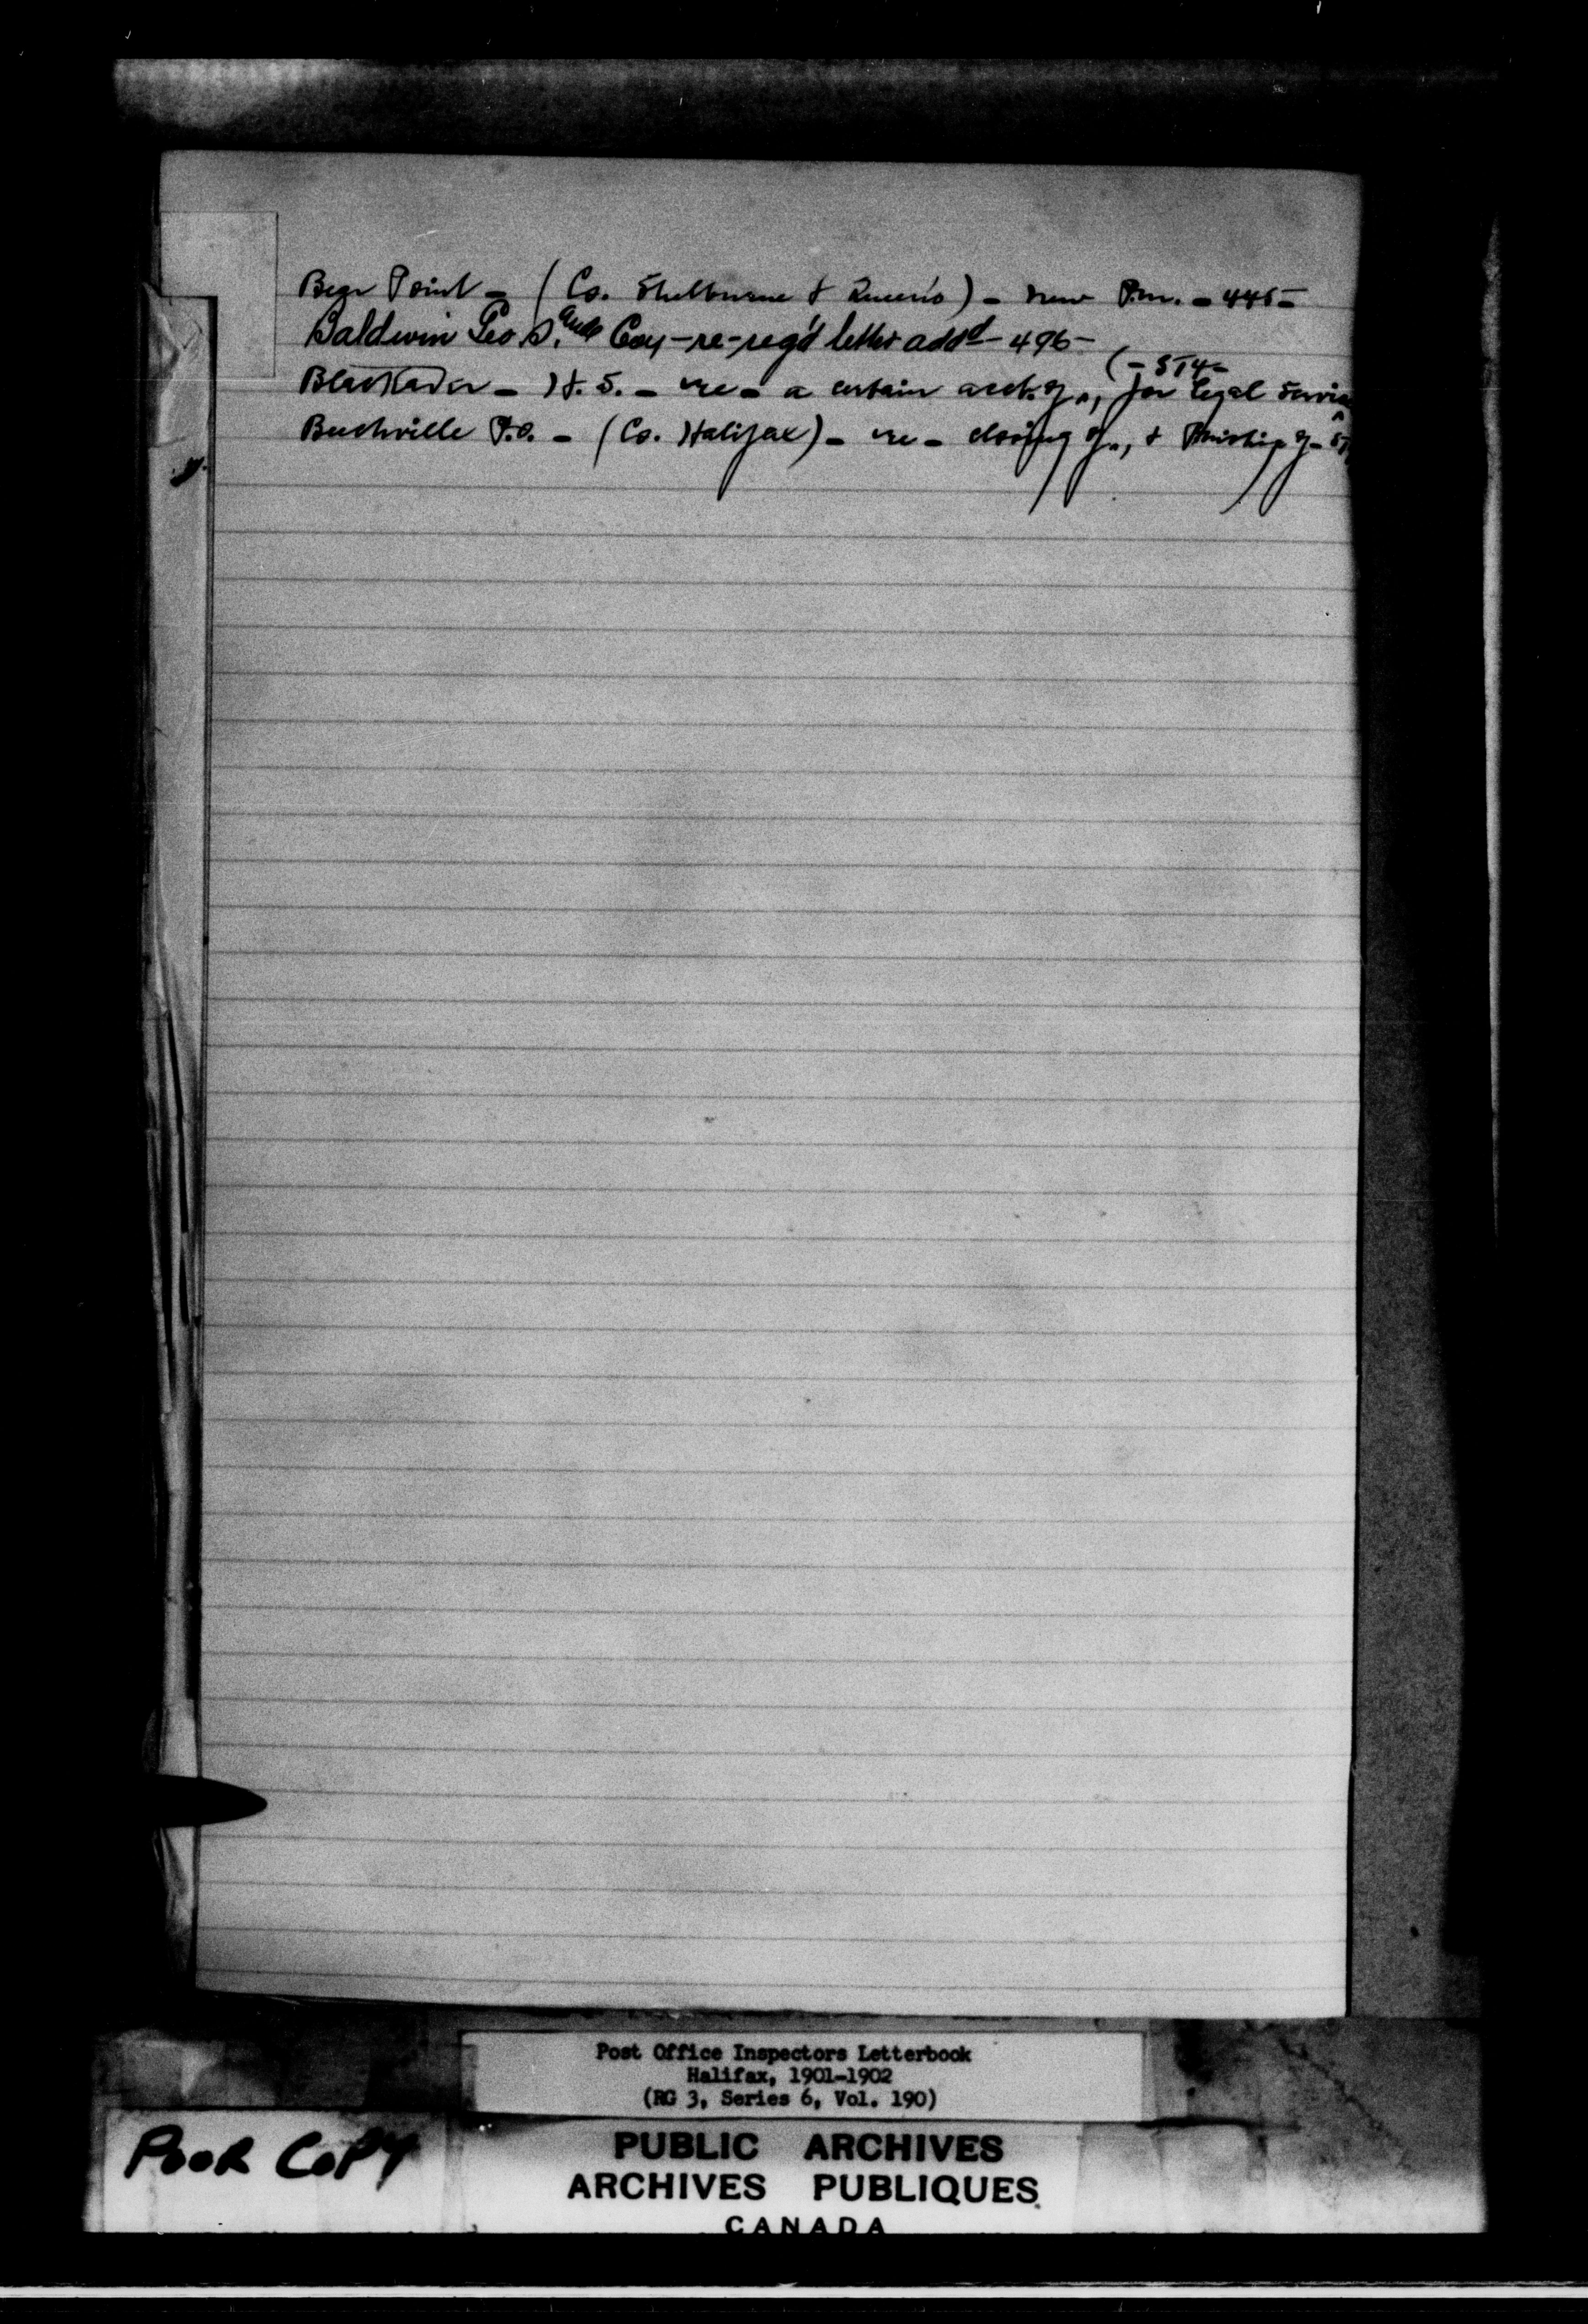 Bear Point - (Co. Shelburne & Queen's) - new P.M. - 445 -
Baldwin Geo S. and Coy - re - reg'd letter add^d - 496 -
(- 514 -
Blackadar - H. S. - re - a certain acct. of ", for legal
Beechville P.O. - (Co. Halifax) - re - closing of ", &
Post Office Inspectors Letterbook
Halifax, 1901-1902
(RG 3, Series 6, Vol. 190)
POOR COPY
PUBLIC ARCHIVES
ARCHIVES PUBLIQUES
CANADA